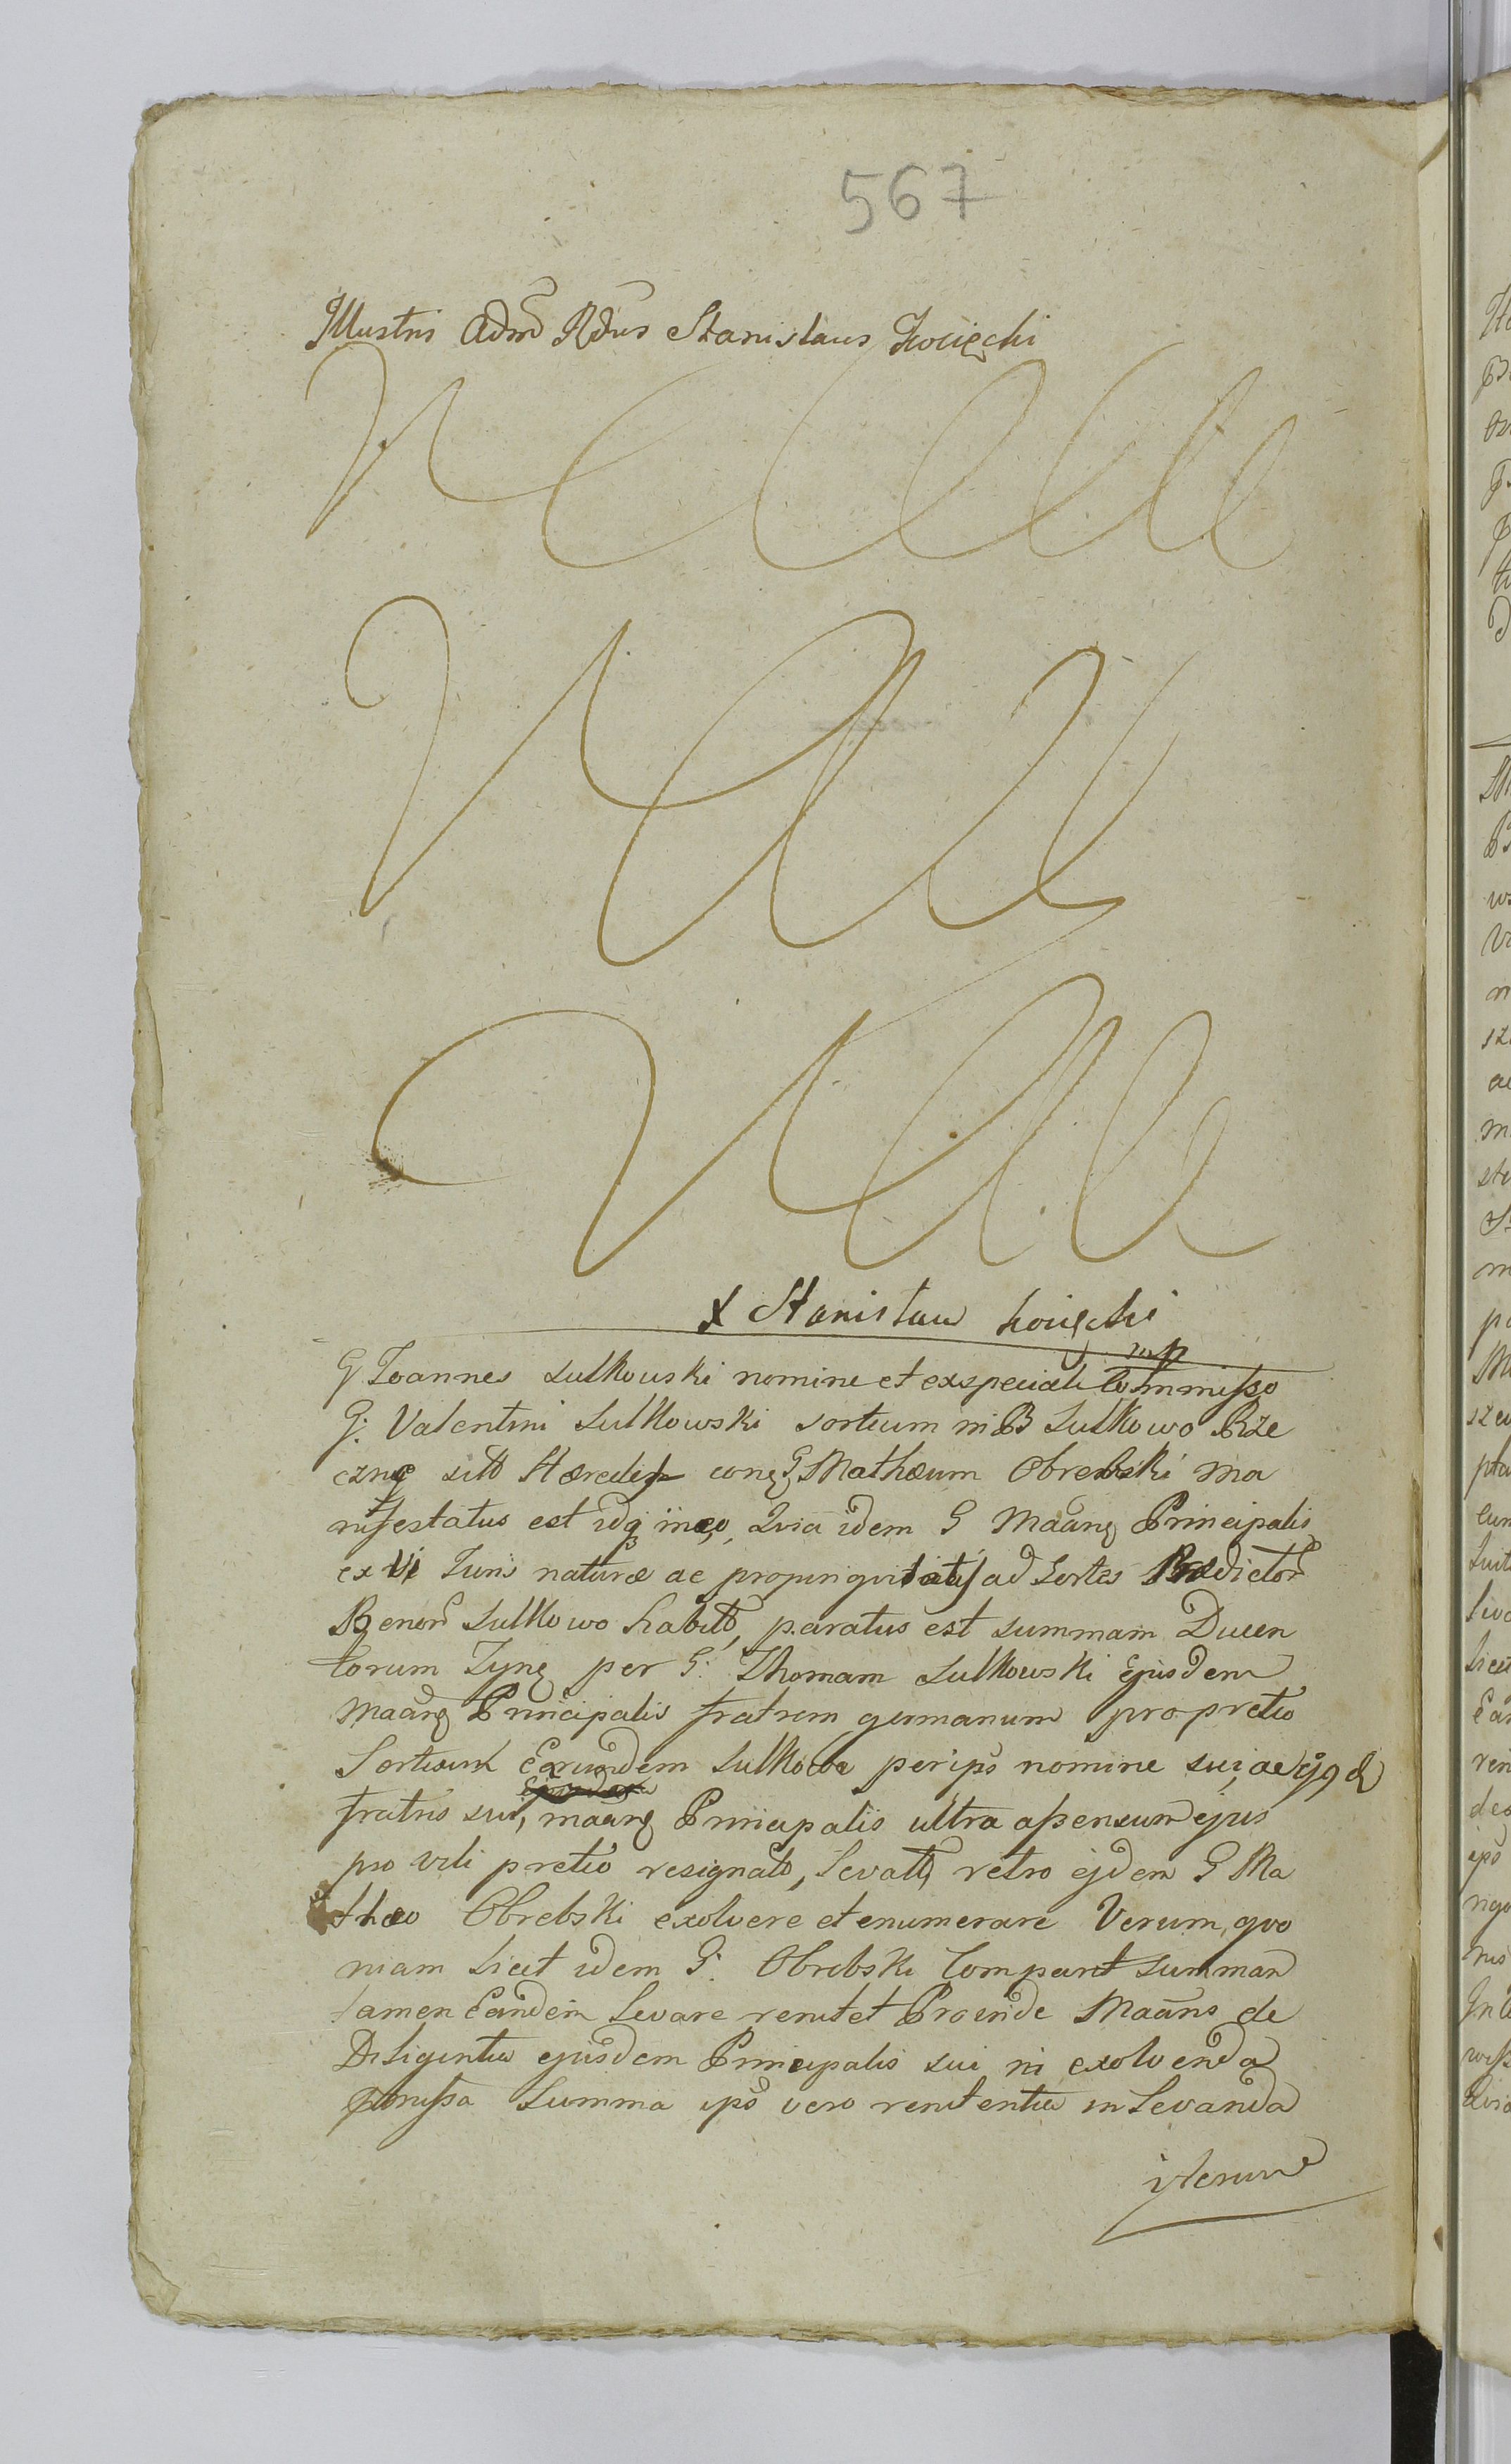 567
Illustris Adm Rdus Stanislaus Kocięcki
X Stanisław Kocięcki
mp
G Ioannes Sulkowski nomine et ex speciali Commisso
G: Valentini Sulkowski sortium in B Sulkowo Rze
czne sitt Hæredis conq G Mathæum Obrebski ma
nifestatus est idq in eo, Quia idem G Maanq Principalis
ex Vi Iuris naturæ ac propinquitatis ad Sortes Prædictor
Benor Sulkowo habitt, paratus est summam Ducen
torum Tynq per G: Thomam Sulkowski Ejusdem
Maanq Principalis fratrem germanum pro pretio
Sortium Earumdem Sulkowo per ips nomine sui, ac
fratris sui, maanq Principalis ultra assensum ejus
pro vili pretio resignatt, Levatt retro ejdem G Ma
thæo Obrebski exolvere et enumerare Verum, quo
niam licet idem G: Obrebski Comparet Summam
tamen Eandem Levare renitet Proinde Maans de
Diligentia ejusdem Principalis sui in exolvenda
præmissa Summa ips vero renitentia in Levanda
iterum